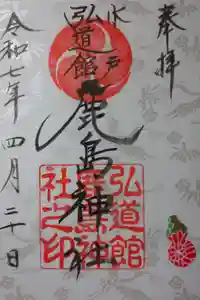 奉拝
水戸
弘道館
鹿島神社
弘道館
鹿島神
社之印
令和七年四月三十日